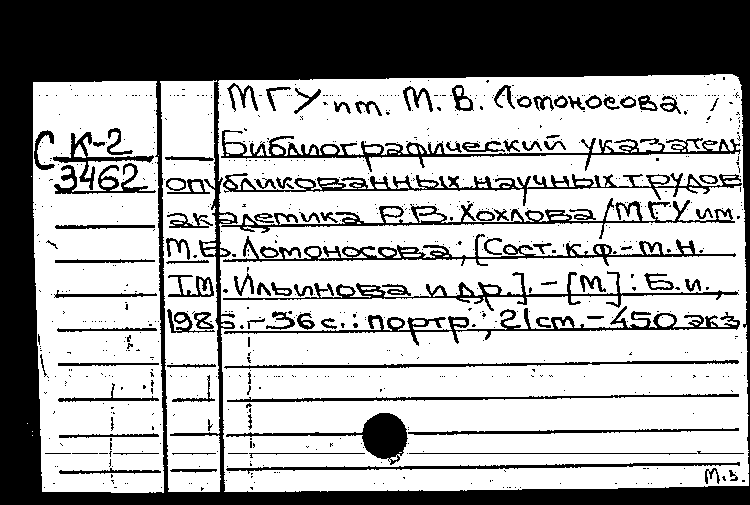 МГУ им. М. В. Ломоносова.
С К-2
3462
Библиографический указатель
опубликованных научных трудов
академика Р.В. Хохлова / МГУ им.
М.В. Ломоносова; [Сост. к.ф.-м.н.
Т.М. Ильинова и др.]. - [М.] : Б.и.,
1986. - 36 с. : портр.; 21 см. - 450 экз.